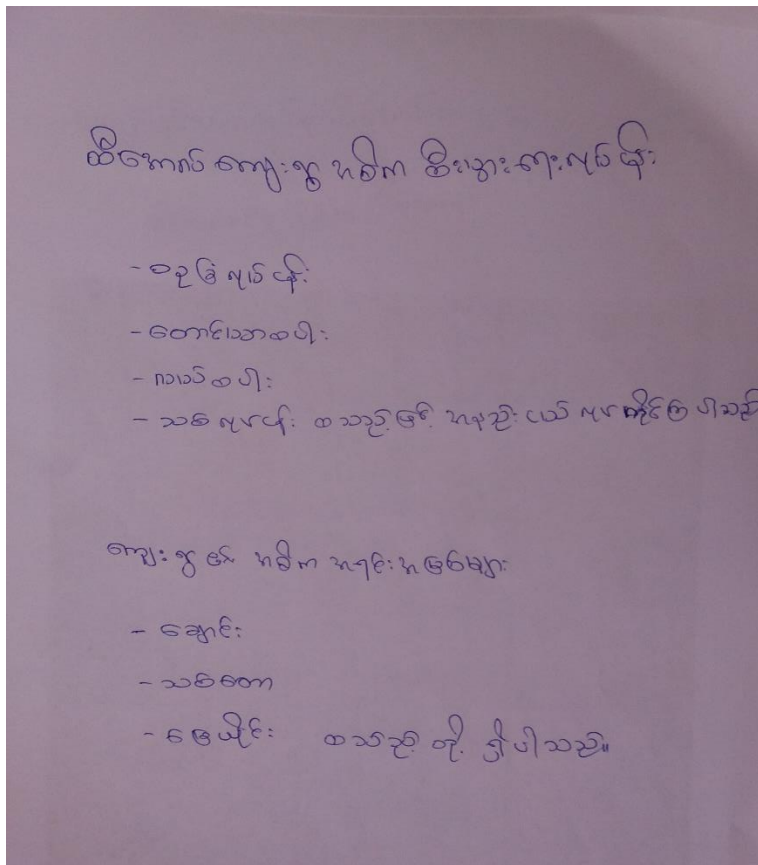 ထီအောလ် ကျေးရွာ အဓိက စီးပွားရေးလုပ်ငန်း
- ဥယျာဉ်ခြံလုပ်ငန်း
- တောင်ယာထပါး
- လယ်ထပါး
- သစ်လုပ်ငန်း ထသည့်ဖြင့် အနည်းငယ် လုပ်ကိုင်ကြပါသည်
ကျေးရွာ၏ အဓိက အရင်းအမြစ်များ
- ချောင်း
- သစ်တော
- မြေယိုင်း ထသည့်တို့ ရှိပါသည်။